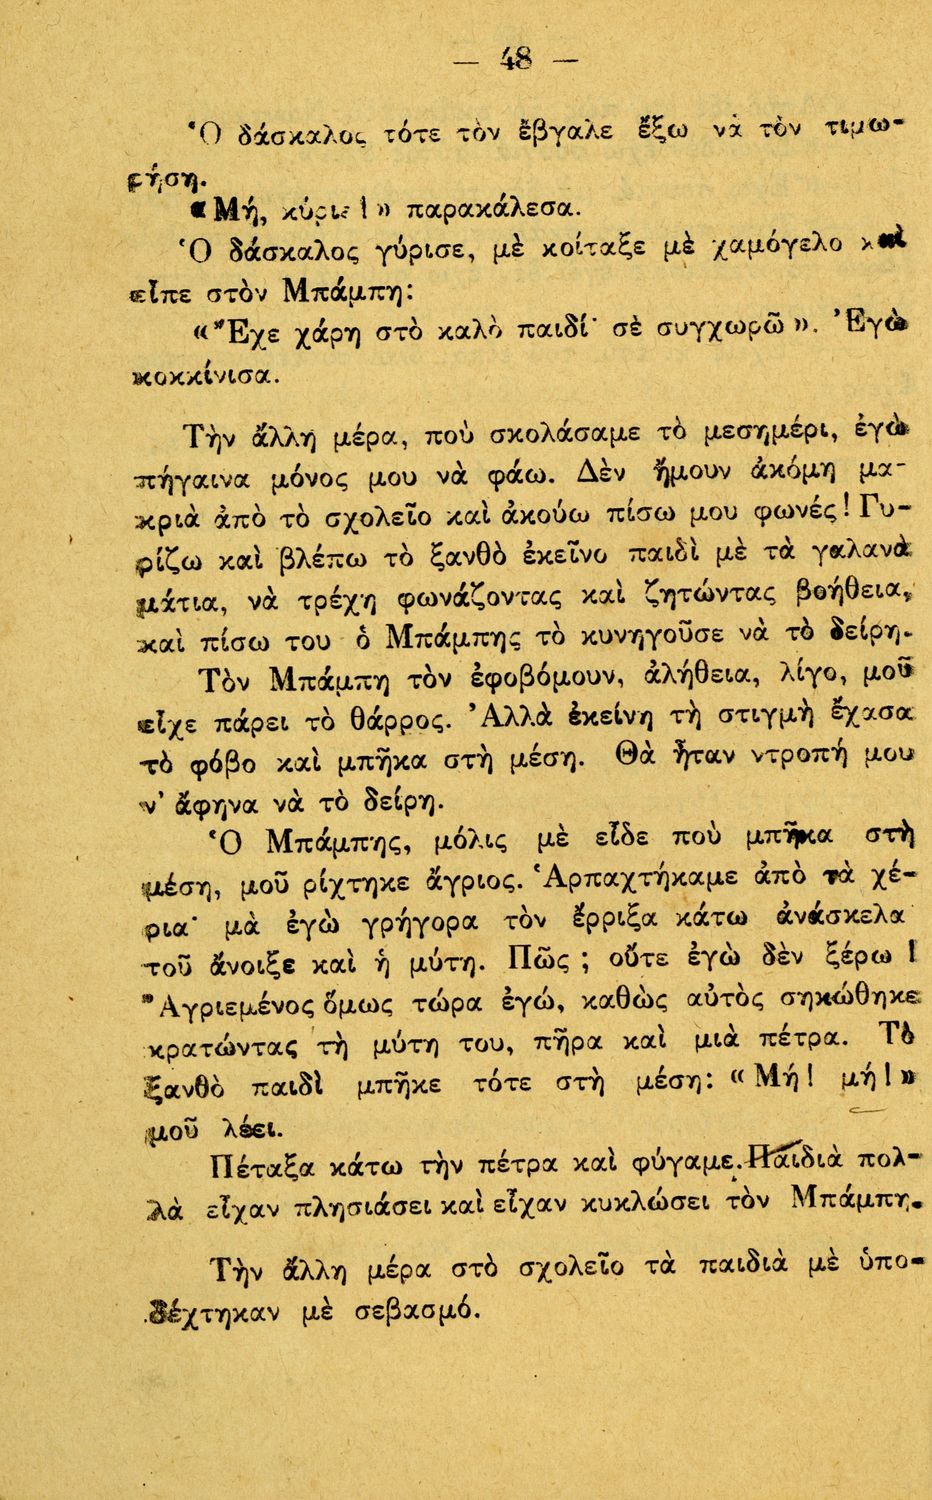 — 48 —
Ὁ δάσκαλος τότε τὸν ἔβγαλε ἔξω νὰ τὸν τιμω-
ρήση.
«Μή, κύριε!» παρακάλεσα.
Ὁ δάσκαλος γύρισε, μὲ κοίταξε μὲ χαμόγελο καὶ
εἶπε στὸν Μπάμπη:
«Ἔχε χάρη στὸ καλὸ παιδί· σὲ συγχωρῶ». Ἐγὼ
κοκκίνισα.
Τὴν ἄλλη μέρα, ποὺ σκολάσαμε τὸ μεσημέρι, ἐγὼ
πήγαινα μόνος μου νὰ φάω. Δὲν ἤμουν ἀκόμη μα-
κριὰ ἀπὸ τὸ σχολεῖο καὶ ἀκούω πίσω μου φωνές! Γυ-
ρίζω καὶ βλέπω τὸ ξανθὸ ἐκεῖνο παιδὶ μὲ τὰ γαλανὰ
μάτια, νὰ τρέχη φωνάζοντας καὶ ζητώντας βοήθεια,
καὶ πίσω του ὁ Μπάμπης τὸ κυνηγοῦσε νὰ τὸ δείρη.
Τὸν Μπάμπη τὸν ἐφοβόμουν, ἀλήθεια, λίγο, μοῦ
εἶχε πάρει τὸ θάρρος. Ἀλλὰ ἐκείνη τὴ στιγμὴ ἔχασα
τὸ φόβο καὶ μπῆκα στὴ μέση. Θὰ ἦταν ντροπή μου
ν' ἄφηνα νὰ τὸ δείρη.
Ὁ Μπάμπης, μόλις μὲ εἶδε ποὺ μπῆκα στὴ
μέση, μοῦ ρίχτηκε ἄγριος. Ἁρπαχτήκαμε ἀπὸ τὰ χέ-
ρια· μὰ ἐγὼ γρήγορα τὸν ἔρριξα κάτω ἀνάσκελα
τοῦ ἄνοιξε καὶ ἡ μύτη. Πῶς ; οὔτε ἐγὼ δὲν ξέρω !
Ἀγριεμένος ὅμως τώρα ἐγώ, καθὼς αὐτὸς σηκώθηκε
κρατώντας τὴ μύτη του, πῆρα καὶ μιὰ πέτρα. Τὸ
ξανθὸ παιδὶ μπῆκε τότε στὴ μέση: «Μή! μή!»
μοῦ λέει.
Πέταξα κάτω τὴν πέτρα καὶ φύγαμε. Παιδιὰ πολ-
λὰ εἶχαν πλησιάσει καὶ εἶχαν κυκλώσει τὸν Μπάμπη.
Τὴν ἄλλη μέρα στὸ σχολεῖο τὰ παιδιὰ μὲ ὑπο-
δέχτηκαν μὲ σεβασμό.